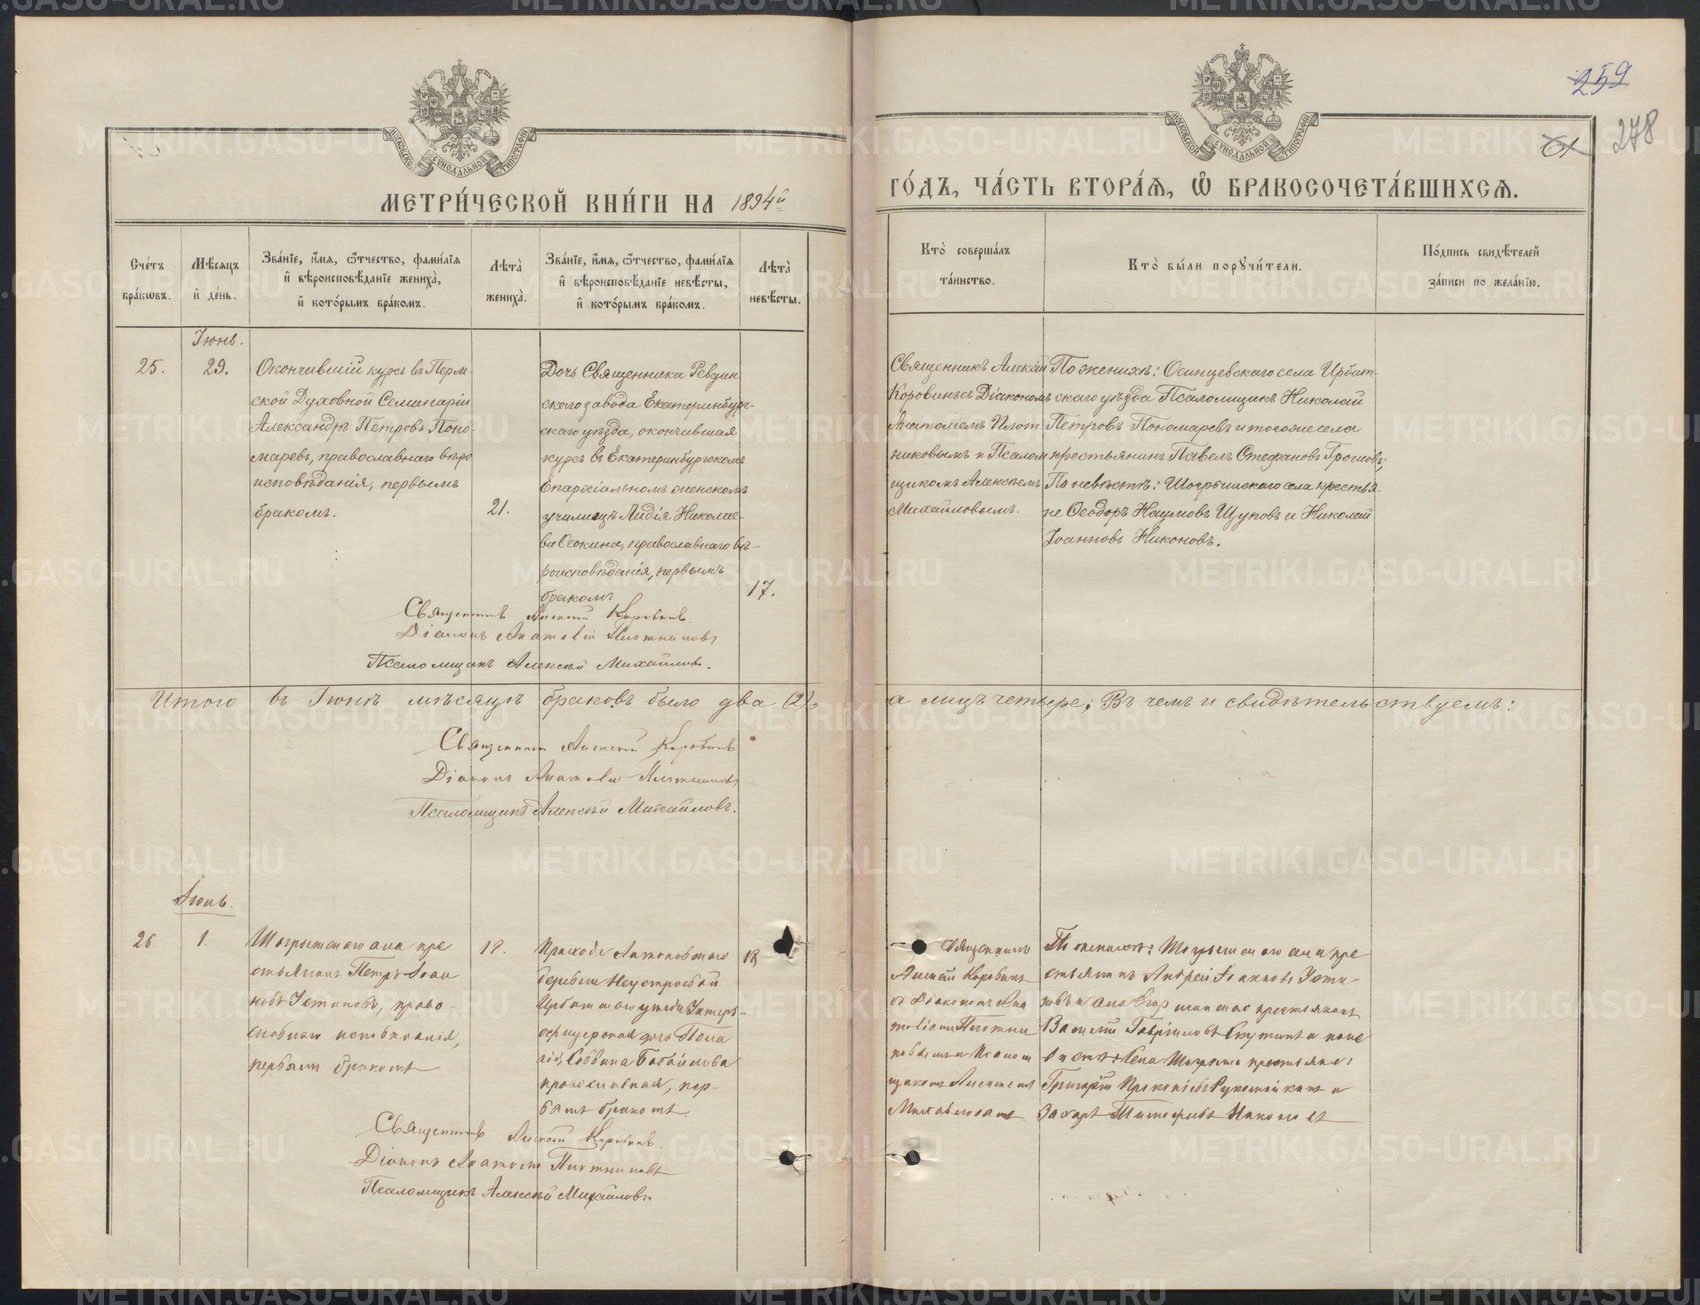 259
61
278
МЕТРИ́ЧЕСКОЙ КНИ́ГИ НА 1894й
ГО́ДЪ, ЧА́СТЬ ВТОРА́Я, Ѡ БРАКОСОЧЕТА́ВШИХСЯ.
Сче́тъ бра́кѡвъ.
Мѣ́сяцъ и де́нь.
Зва́нїе, и́мя, ѻ́тчество, фами́лїя и вѣроисповѣ́данїе жениха̀, и кото́рымъ бра́комъ.
Лѣта̀ жениха̀.
Зва́нїе, и́мя, ѻ́тчество, фами́лїя и вѣроисповѣ́данїе невѣ́сты, и кото́рымъ бра́комъ.
Лѣта̀ невѣ́сты.
Кто̀ соверша́лъ та́инство.
Кто̀ бы́ли поручи́тели.
По́дпись свидѣ́телей за́писи по жела́нїю.
Іюнь.
25.
29.
Окончившій курсъ въ Перм-
ской Духовной Семинаріи
Александръ Петровъ Поно-
маревъ, православнаго вѣро
исповѣданія, первымъ
бракомъ.
21.
Дочь Священника Ревдин
скаго завода Екатеринбург-
скаго уѣзда, окончившая
курсъ въ Екатеринбургскомъ
Епархіальномъ женскомъ
училищѣ Лидія Николае-
ва Осокина, православнаго вѣ-
роисповѣданія, первымъ
бракомъ
17.
Священникъ Алексій
Коровинъ съ Діакономъ
Анатоліемъ Плот
никовымъ и Псалом
щикомъ Алексѣемъ
Михайловымъ.
По женихѣ: Осинцевскаго села Ирбит-
скаго уѣзда Псаломщикъ Николай
Петровъ Пономаревъ и тогоже села
крестьянинъ Павелъ Стефановъ
По невѣстѣ: Шогрышскаго села крестья-
не Ѳеодоръ Наумовъ Щуповъ и Николай
Іоанновъ Никоновъ.
Священникъ Алексій Коровинъ
Діаконъ Анатолій Плотниковъ
Псаломщикъ Алексѣй Михайловъ.
Итого въ Іюнѣ мѣсяцѣ браковъ было два (2),
а лицъ четыре; Въ чемъ и свидѣтельствуемъ:
Священникъ Алексій Коровинъ
Діаконъ Анатолій Плотниковъ
Псаломщикъ Алексѣй Михайловъ.
26
1
Шогрышскаго села кре
стьянинъ Петръ Іоан
новъ Устиновъ, право-
славнаго исповѣданія,
первымъ бракомъ
18.
деревни Неустроевой
Ирбитскаго уѣзда Унтеръ-
офицерская дочь
православная, пер-
вымъ бракомъ
18
Священникъ
Алексій Коровинъ
съ Діакономъ Ана
толіемъ Плотни
ковымъ и Псалом
щикомъ Алексѣемъ
Михайловымъ
По женихѣ: Шогрышскаго села кре
стьянинъ Андрей Іоанновъ Усти-
Василій Гавріиловъ
Григорій Прокопіевъ
Священникъ Алексій Коровинъ.
Діаконъ Анатолій Плотниковъ
Псаломщикъ Алексѣй Михайловъ